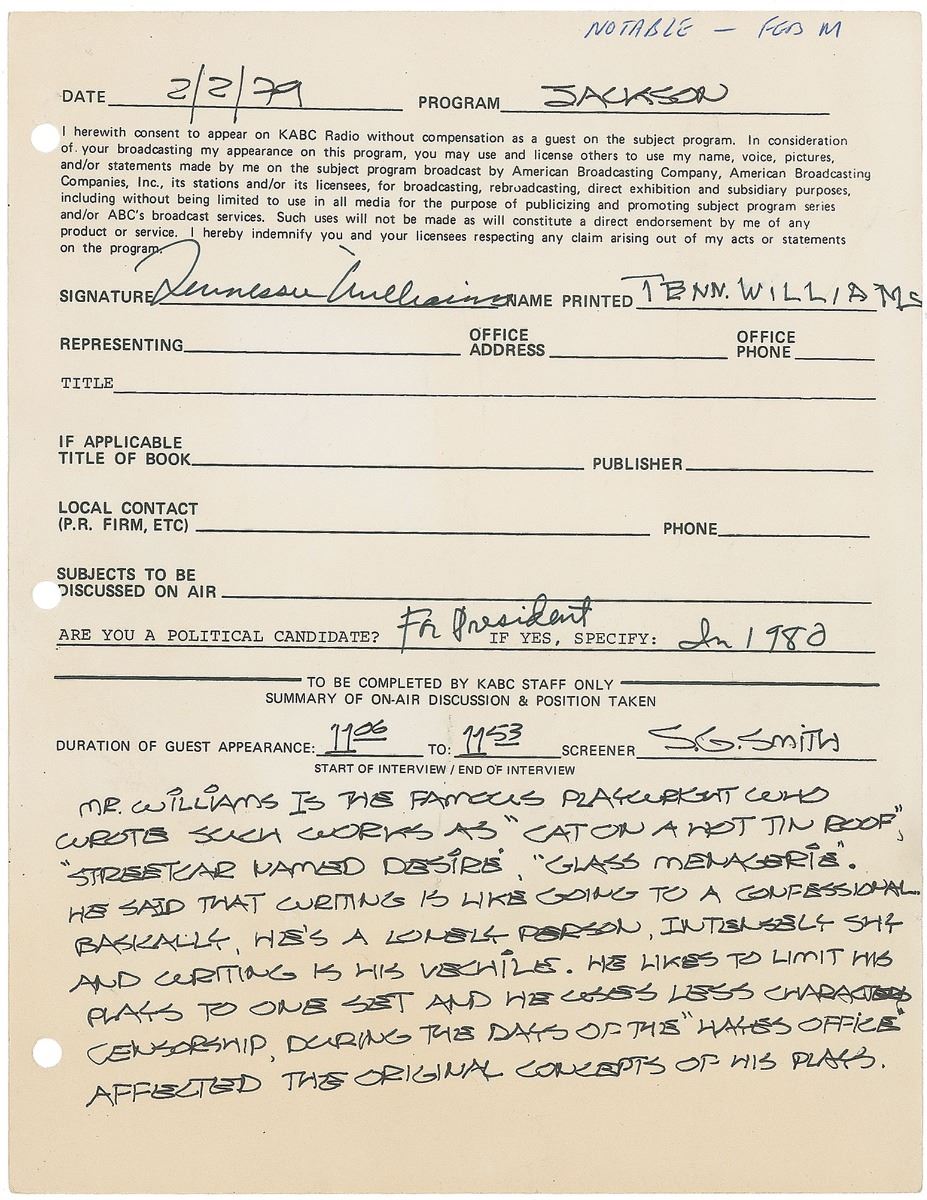 NOTABLE — FEB M
DATE 2/2/79 PROGRAM JACKSON
I herewith consent to appear on KABC Radio without compensation as a guest on the subject program. In consideration
of your broadcasting my appearance on this program, you may use and license others to use my name, voice, pictures,
and/or statements made by me on the subject program broadcast by American Broadcasting Company, American Broadcasting
Companies, Inc., its stations and/or its licensees, for broadcasting, rebroadcasting, direct exhibition and subsidiary purposes,
including without being limited to use in all media for the purpose of publicizing and promoting subject program series
and/or ABC's broadcast services. Such uses will not be made as will constitute a direct endorsement by me of any
product or service. I hereby indemnify you and your licensees respecting any claim arising out of my acts or statements
on the program.
SIGNATURE Tennessee Williams NAME PRINTED TENN. WILLIAMS
REPRESENTING OFFICE ADDRESS OFFICE PHONE
TITLE
IF APPLICABLE
TITLE OF BOOK PUBLISHER
LOCAL CONTACT
(P.R. FIRM, ETC) PHONE
SUBJECTS TO BE
DISCUSSED ON AIR
ARE YOU A POLITICAL CANDIDATE? For President IF YES, SPECIFY: In 1980
TO BE COMPLETED BY KABC STAFF ONLY
SUMMARY OF ON-AIR DISCUSSION & POSITION TAKEN
DURATION OF GUEST APPEARANCE: 1106 TO: 1153 SCREENER S.G. SMITH
START OF INTERVIEW / END OF INTERVIEW
MR. WILLIAMS IS THE FAMOUS PLAYWRIGHT WHO
WROTE SUCH WORKS AS "CAT ON A HOT TIN ROOF",
"STREETCAR NAMED DESIRE", "GLASS MENAGERIE".
HE SAID THAT WRITING IS LIKE GOING TO A CONFESSIONAL.
BASICALLY, HE'S A LONELY PERSON, INTENSELY SHY
AND WRITING IS HIS VECHILE. HE LIKES TO LIMIT HIS
PLAYS TO ONE SET AND HE USES LESS CHARACTERS
CENSORSHIP, DURING THE DAYS OF THE "HAYES OFFICE"
AFFECTED THE ORIGINAL CONCEPTS OF HIS PLAYS.